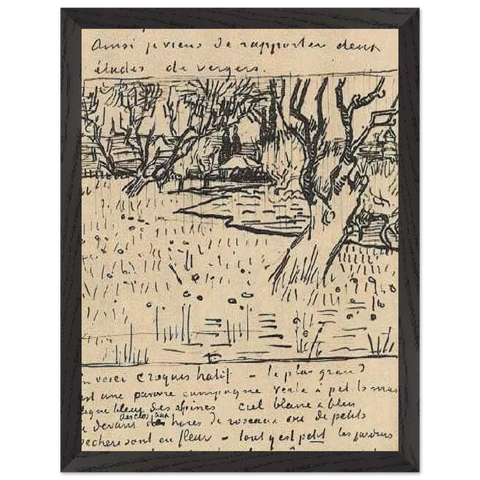 Ainsi je viens de rapporter deux
études de vergers.
voici croquis hatif – le plus grand
est une pauvre campagne verte à pet. s mas
ligne bleue des alpines ciel blanc & bleu
devant des clos aux haies de roseaux où de petits
pechers sont en fleur – tout y est petit les jardins